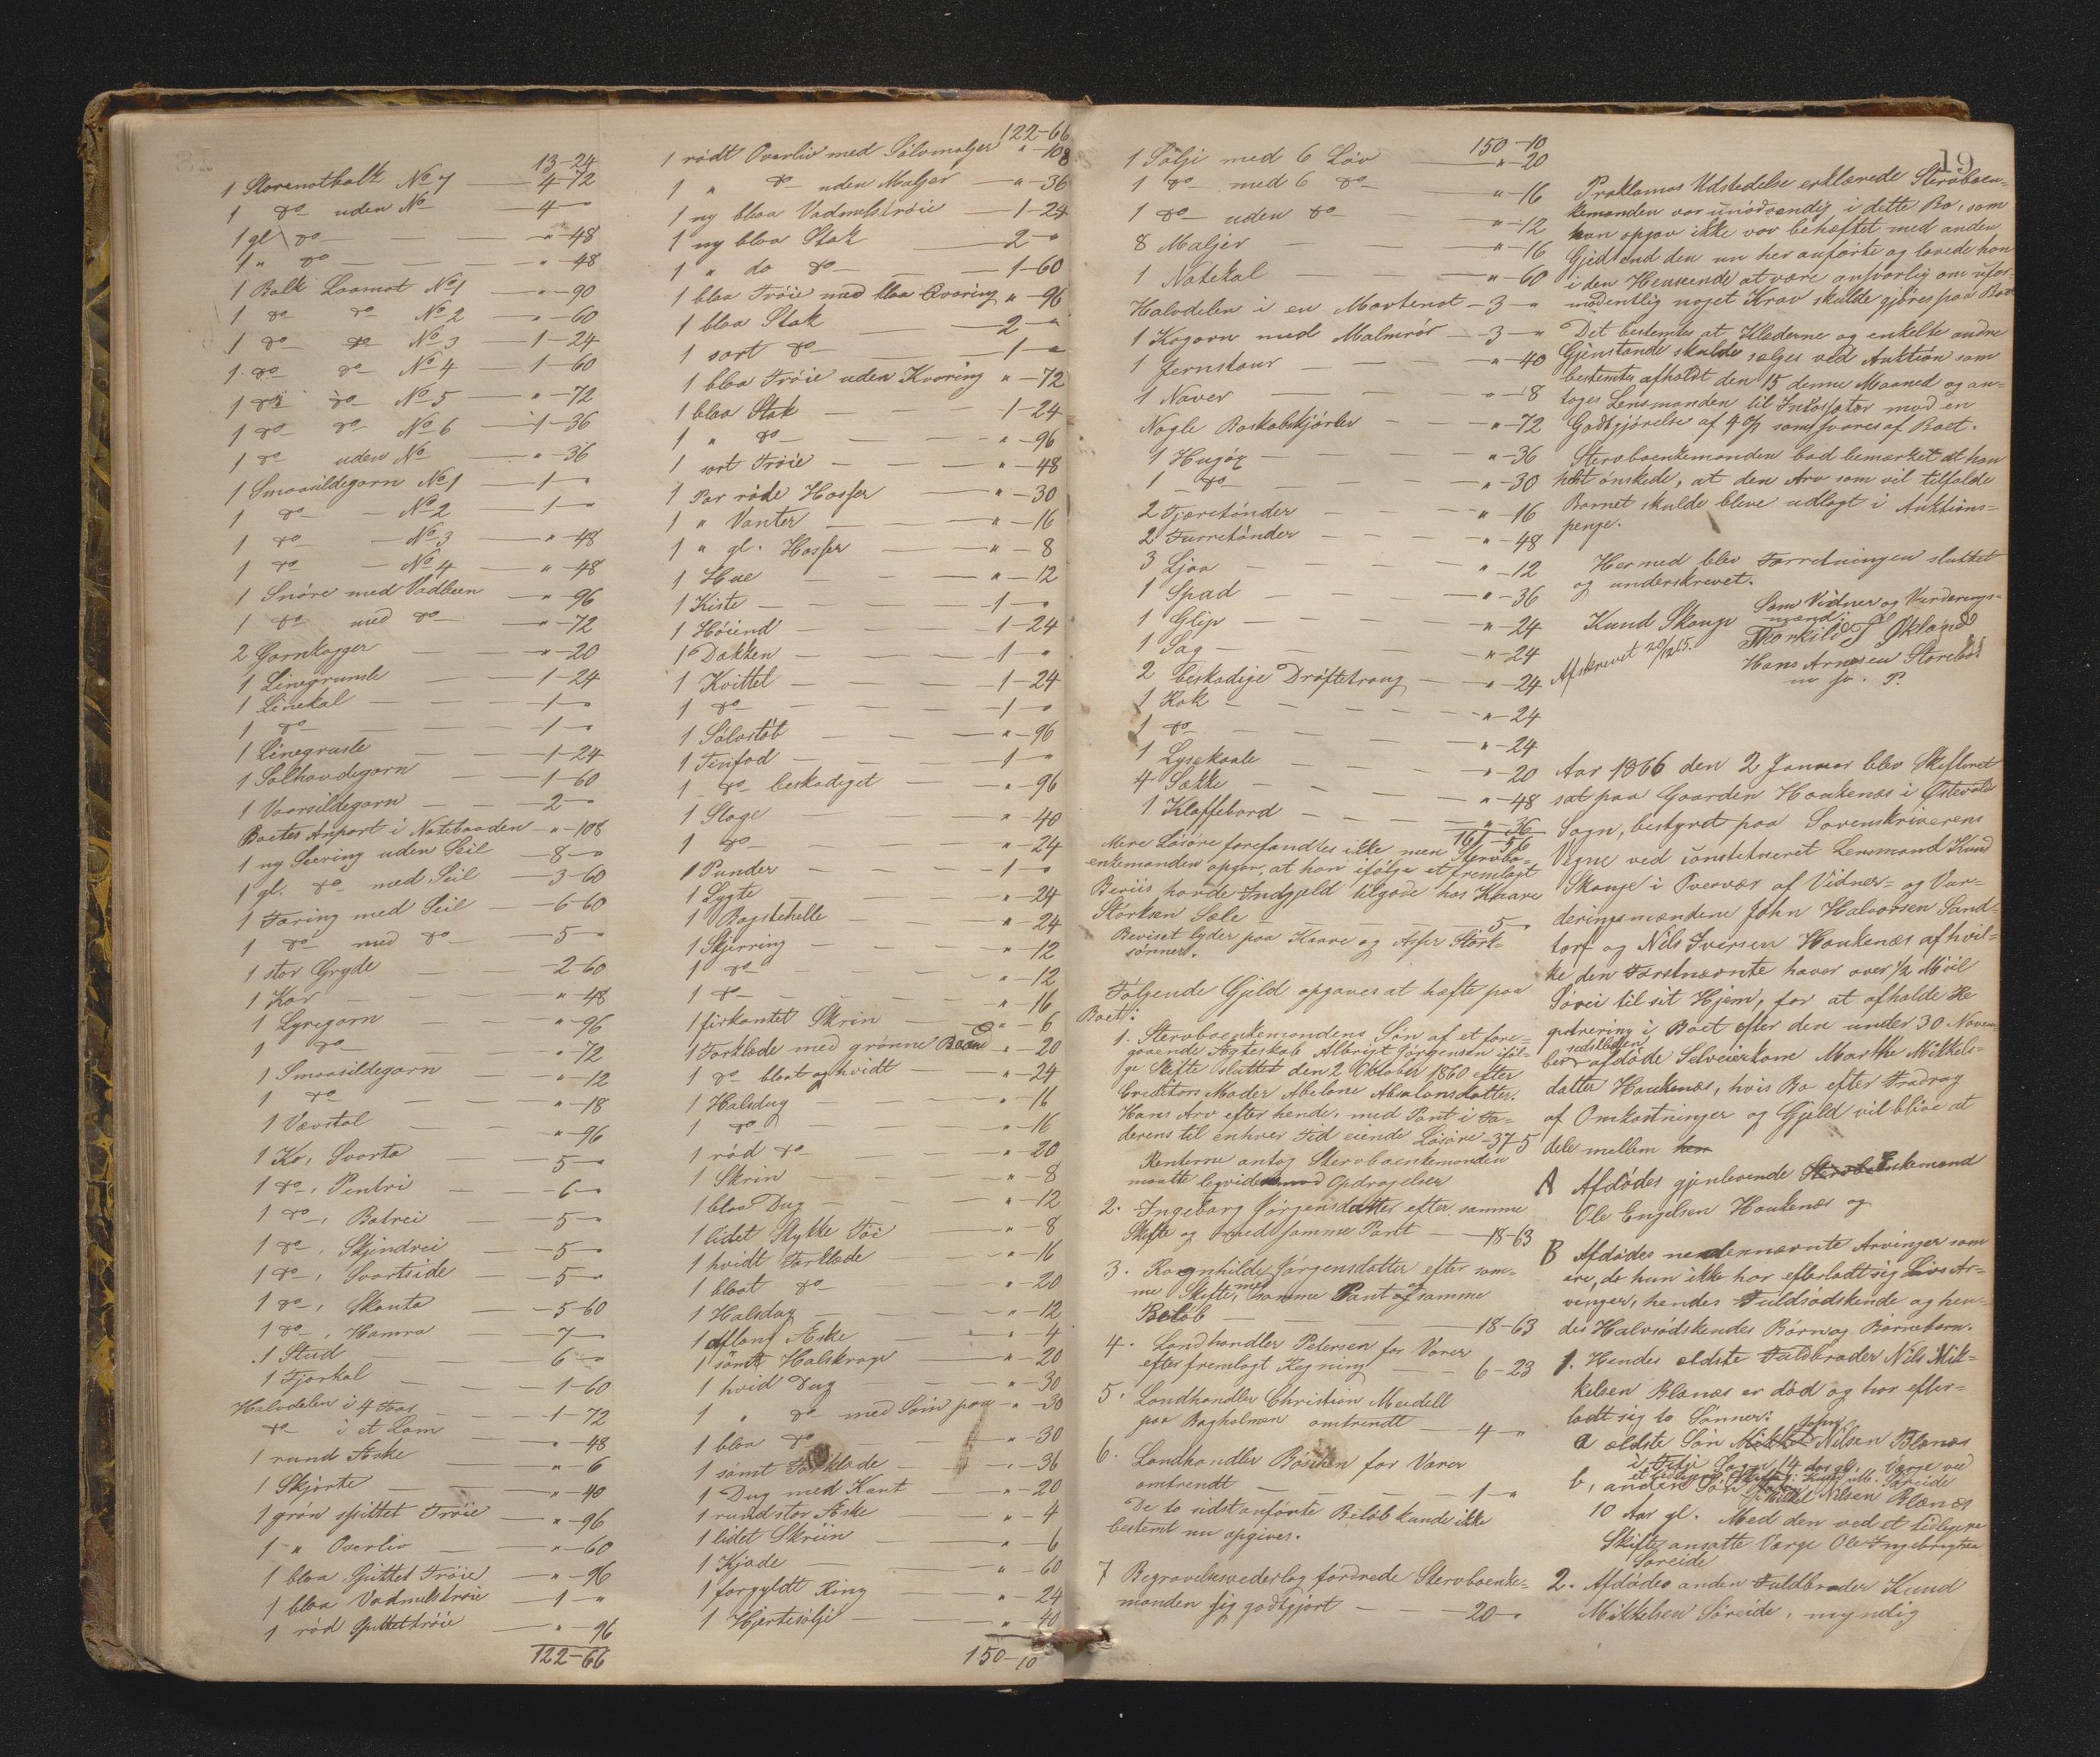 13-24
1 Storenotbalk No 7 — 4-72
1 do uden No — 4 - "
1 gl. do — " - 48
1 " do — " - 48
1 Balk Laamot No 1 — " - 90
1 do do No 2 — " - 60
1 do do No 3 — 1-24
1 do do No 4 — 1-60
1 do do No 5 — " - 72
1 do do No 6 — 1-36
1 do uden No — " - 36
1 Smaasildegarn No 1 — 1 - "
1 do — No 2 — 1 - "
1 do — No 3 — " - 48
1 do — No 4 — " - 48
1 Snøre med Vadbeen — " - 96
1 do med do — " - 72
2 Garnkagger — " - 20
1 Linegrunsle — 1-24
1 Linekal — 1 - "
1 do — 1 - "
1 Linegrusle — 1-24
1 Salhovdegarn — 1-60
1 Vaarsildegarn — 2 - "
Boets Anpart i Notebaaden — " - 108
1 ny Seering uden Seil — 8 - "
1 gl. do med Seil — 3-60
1 Færing med Seil — 6-60
1 do med do — 5 - "
1 stor Gryde — 2-60
1 Kar — " - 48
1 Lyregarn — " - 96
1 do — " - 72
1 Smaasildegarn — " - 12
1 do — " - 18
1 Vævstol — " - 96
1 Ko, Svarta — 5 - "
1 do, Pentri — 6 - "
1 do, Batrei — 5 - "
1 do, Skjindrei — 5 - "
1 do, Svartside — 5 - "
1 do, Skauta — 5-60
1 do, Hamra — 7 - "
1 Stud — 6 - "
1 Fjorkal — 1-60
Halvdelen i 4 Faar — 1-72
do i et Lam — " - 48
1 rund Æske — " - 6
1 Skjørte — " - 40
1 grøn spittet Trøie — " - 96
1 " Overliv — " - 60
1 blaa spittet Trøie — " - 96
1 blaa Vadmelstrøie — 1 - "
1 rød spittettrøie — " - 96
122-66
122-66
1 rødt Overliv med Sølvmaljer " - 108
1 " do uden Maljer — " - 36
1 ny blaa Vadmelstrøie — 1-24
1 ny blaa Stak — 2 - "
1 " do do — 1-60
1 blaa Trøie med blaa Qvaring " - 96
1 blaa Stak — 2 - "
1 sort do — 1 - "
1 blaa Trøie uden Kvaring " - 72
1 blaa Stak — 1-24
1 " do — " - 96
1 sort Trøie — " - 48
1 Par røde Hoser — " - 30
1 " Vanter — " - 16
1 " gl. Hoser — " - 8
1 Hue — " - 12
1 Kiste — 1 - "
1 Høiend — 1-24
1 Dækken — 1 - "
1 Kvittel — 1-24
1 do — 1 - "
1 Sølvstøb — " - 96
1 Tinfad — 1 - "
1 do beskadiget — " - 96
1 Stage — " - 40
1 do — " - 24
1 Punder — 1 - "
1 Lygte — " - 24
1 Bagstehelle — " - 24
1 Skjerring — " - 12
1 do — " - 12
1 do — " - 16
1 firkantet Skrin — " - 6
1 Forklæde med grønne Baand " - 20
1 do blaat og hvidt — " - 24
1 Halsdug — " - 16
1 do — " - 16
1 rød do — " - 20
1 Skrin — " - 8
1 blaa Dug — " - 12
1 lidet Stykke Tøi — " - 8
1 hvidt Forklæde — " - 16
1 blaat do — " - 20
1 Halsdug — " - 12
1 aflang Æske — " - 4
1 sømt Halskrage — " - 20
1 hvid Dug — " - 30
1 " do med Søm paa — " - 30
1 blaa do — " - 30
1 sømt Forklæde — " - 36
1 Dug med Kant — " - 20
1 rund stor Æske — " - 4
1 lidet Skriin — " - 6
1 Kjæde — " - 60
1 forgyldt Ring — " - 24
1 Hjertesølje — " - 40
150-10
150-10
1 Sølje med 6 Løv — " - 20
1 do med 6 do — " - 16
1 do uden do — " - 12
8 Maljer — " - 16
1 Notekal — " - 60
Halvdelen i en Mortenot — 3 - "
1 Kogorn med Malmrør — 3 - "
1 Jernstaur — " - 40
1 Naver — " - 8
Nogle Boskabskjørler — " - 72
1 Hugøx — " - 36
1 do — " - 30
2 Tjæretønder — " - 16
2 Turretønder — " - 48
3 Ljaa — " - 12
1 Spad — " - 36
1 Glip — " - 24
1 Sag — " - 24
2 beskadige Drøftetraug — " - 24
1 Rok — " - 24
1 do — " - 24
1 Lysekaale — " - 20
4 Sække — " - 48
1 Klaffebord — " - 36
161-56
Mere Løsøre forefandtes ikke men Stervbo-
enkemanden opgav, at han ifølge et fremlagt
Beviis havde Indgjeld tilgode hos Knare
Størksen Sæle — 5 - "
Beviset lyder paa Kaare og Asser Størk-
sønner.
Følgende Gjeld opgaves at hæfte paa
Boet:
1. Stervboenkemandens Søn af et fore-
gaaende Ægteskab Albrigt Jørgensen iføl-
ge Skifte sluttet den 2 Oktober 1860 efter
Creditors Moder Abelone Absalonsdatter.
Hans Arv efter hende, med Pant i Fa-
derens til enhver Tid eiende Løsøre — 37-5
Renterne antog Stervboenkemanden
maatte ligvides mod Opdragelsen
2. Ingeborg Jørgensdatter efter samme
Skifte og med samme Pant — 18-63
3. Ragnhilde Jørgensdatter efter sam-
me Skifte, med samme Pant og samme
Beløb — 18-63
4. Landhandler Petersen for Varer
efter fremlagt Regning — 6-23
5. Landhandler Christian Meidell
paa Bagholmen omtrendt — 4 - "
6. Landhandler Bøschen for Varer
omtrendt — 1 - "
De to sidstanførte Beløb kunde ikke
bestemt nu opgives.
7 Begravelsesvederlag fordrede Stervboenke-
manden sig godtgjort — 20 - "
19
Proklamas Udstedelse erklærede Stervboen-
kemanden var unødvendig i dette Bo, som
han opgav ikke var behæftet med anden
Gjeld end den nu her anførte og lovede han
i den Henseende at være ansvarlig om ufor-
modentlig noget Krav skulde gjøres paa Boet
Det bestemtes at Klæderne og enkelte andre
Gjenstande skulde sælges ved Auktion som
bestemtes afholdt den 15 denne Maaned og an-
toges Lensmanden til Inkassator mod en
Godtgjørelse af 4 % som svares af Boet.
Stervboenkemanden bad bemærket at han
helst ønskede, at den Arv som vil tilfalde
Barnet skulde blive udlagt i Auktions-
penge.
Hermed blev Forretningen sluttet
og underskrevet.
Knud Skauge
Som Vidner og Vurderings-
mænd:
Thorkild T Økland
Hans Arnesen Storebø
m. f. P.
Afskrevet 20/12 65.
Aar 1866 den 2 Januar blev Skifteret
sat paa Gaarden Haukenæs i Østevold
Sogn, bestyret paa Sorenskriverens
Vegne ved constitueret Lensmand Knud
Skauge i Tvervær af Vidner- og Vur-
deringsmændene John Halvorsen Sand-
torf og Nils Iversen Haukenæs af hvil-
ke den Førstnævnte haver over 1/2 Miil
Søvei til sit Hjem, for at afholde Re
gistrering i Boet efter den under 30 Novem-
ber sidstleden afdøde Selveierkone Marthe Mikkels-
datter Haukenæs, hvis Bo efter Fradrag
af Omkostninger og Gjeld vil blive at
dele mellem hen
A Afdødes gjenlevende Stervbo Enkemand
Ole Engelsen Haukenæs og
B Afdødes nedennævnte Arvinger som
ere, da hun ikke har efterladt sig Livs Ar-
vinger, hendes Fuldsødskende og hen-
des Halvsødskendes Børn og Børnebørn.
1. Hendes ældste Fuldbroder Nils Mik-
kelsen Blænæs er død og har efter-
ladt sig to Sønner:
a ældste Søn Mikkel John Nilsen Blænæs
i Fitje Sogn 14 Aar gl. Værge ved
b, anden Søn Mikkel Nilsen Blænæs
10 Aar gl. Med den ved et tidligere
Skifte ansatte Værge Ole Ingebrigtsen
Søreide
2. Afdødes anden Fuldbroder Knud
Mikkelsen Søreide, myndig